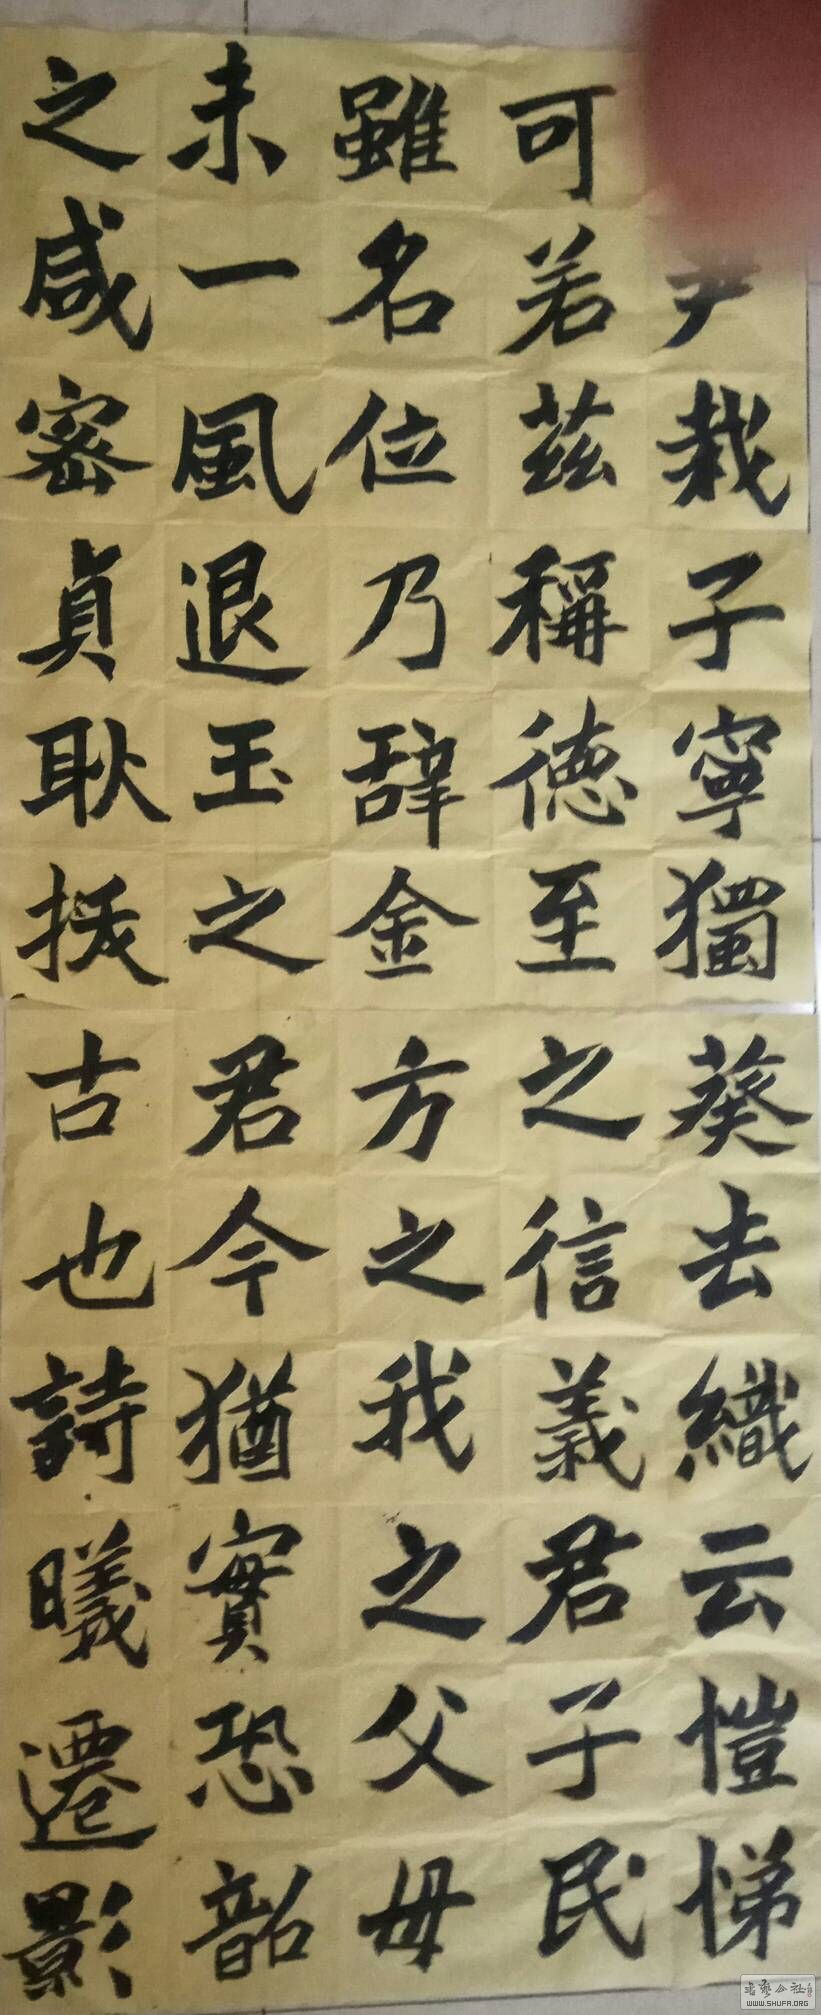 尹栽子寧獨葵去織云愷悌
可若茲稱德至之信義君子民
雖名位乃辞金方之我之父母
未一風退玉之君今猶實恐韶
之咸宻貞耿抚古也詩曦遷影
WWW.SHUFA.ORG